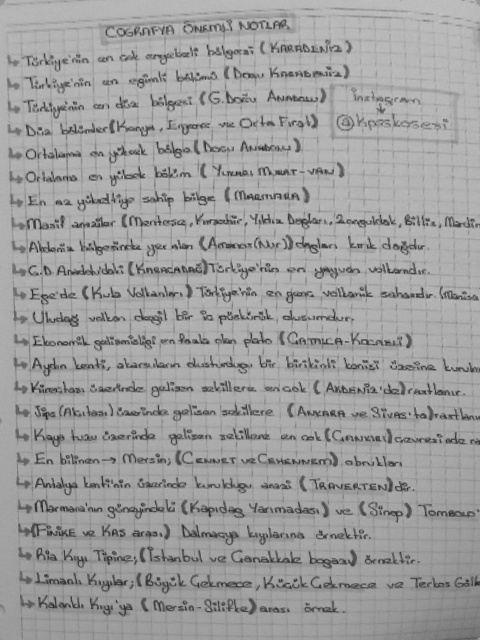 COĞRAFYA ÖNEMLİ NOTLAR
Türkiye'nin en çok engebeli bölgesi (KARADENİZ)
Türkiye'nin en eğimli bölümü (DOĞU KARADENİZ)
Türkiye'nin en düz bölgesi (G.DOĞU ANADOLU)
instagram
@Kpsskosesi
Düz bölümler (Konya, Ergene ve Orta Fırat)
Ortalama en yüksek bölge (DOĞU ANADOLU)
Ortalama en yüksek bölüm (YUKARI MURAT-VAN)
En az yükseltiye sahip bölge (MARMARA)
Masif araziler (Menteşe, Kırşehir, Yıldız Dağları, Zonguldak, Bitlis, Mardin
Akdeniz bölgesinde yer alan (Amanos(Nur)) dağları kırık dağdır.
G.D. Anadoludaki (KARACADAĞ) Türkiye'nin en yayvan volkanıdır.
Ege'de (Kula Volkanları) Türkiye'nin en genç volkanik sahasıdır. (Manisa
Uludağ volkan değil bir iç püskürük oluşumdur.
Ekonomik gelişmişliği en fazla olan plato (ÇATALCA-KOCAELİ)
Aydın kenti, akarsuların oluşturduğu bir birikinti konisi üzerine
Kireçtaşı üzerinde gelişen şekillere en çok (AKDENİZ'de) rastlanır.
Jips (Alçıtaşı) üzerinde gelişen şekillere (ANKARA ve SİVAS'ta)
Kaya tuzu üzerinde gelişen şekillere en çok (ÇANKIRI)
En bilinen → Mersin; (CENNET ve CEHENNEM) obrukları
Antalya kenti'nin üzerinde kurulduğu arazi (TRAVERTEN)dir.
Marmara'nın güneyindeki (Kapıdağ Yarımadası) ve (Sinop) TOMBOLO'
(FİNİKE ve KAŞ arası) Dalmaçya kıyılarına örnektir.
Ria Kıyı Tipine; (İstanbul ve Çanakkale boğazı) örnektir.
Limanlı Kıyılar; (Büyük Çekmece, Küçük Çekmece ve Terkos
Kalanklı Kıyı'ya (Mersin-Silifke) arası örnek.